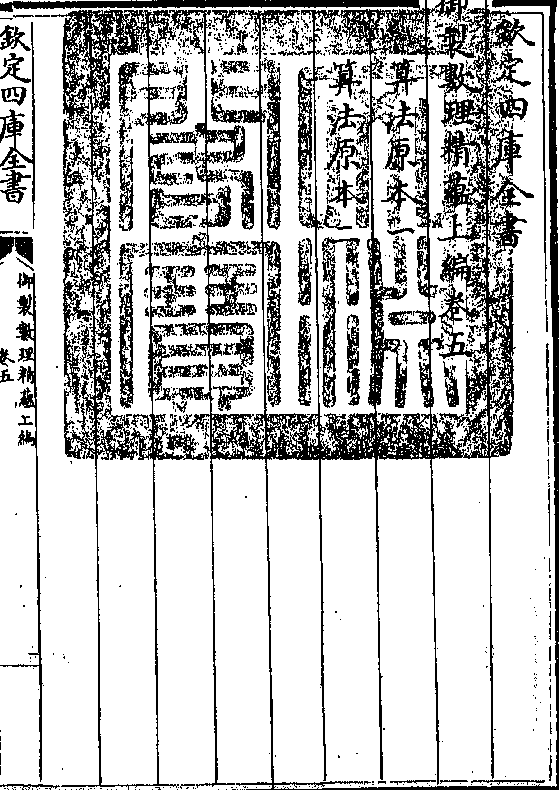 欽定四庫全書
御製數理精藴上編卷五
算法原本一
算法原本二
欽定四庫全書
御製數理精藴上編
卷五